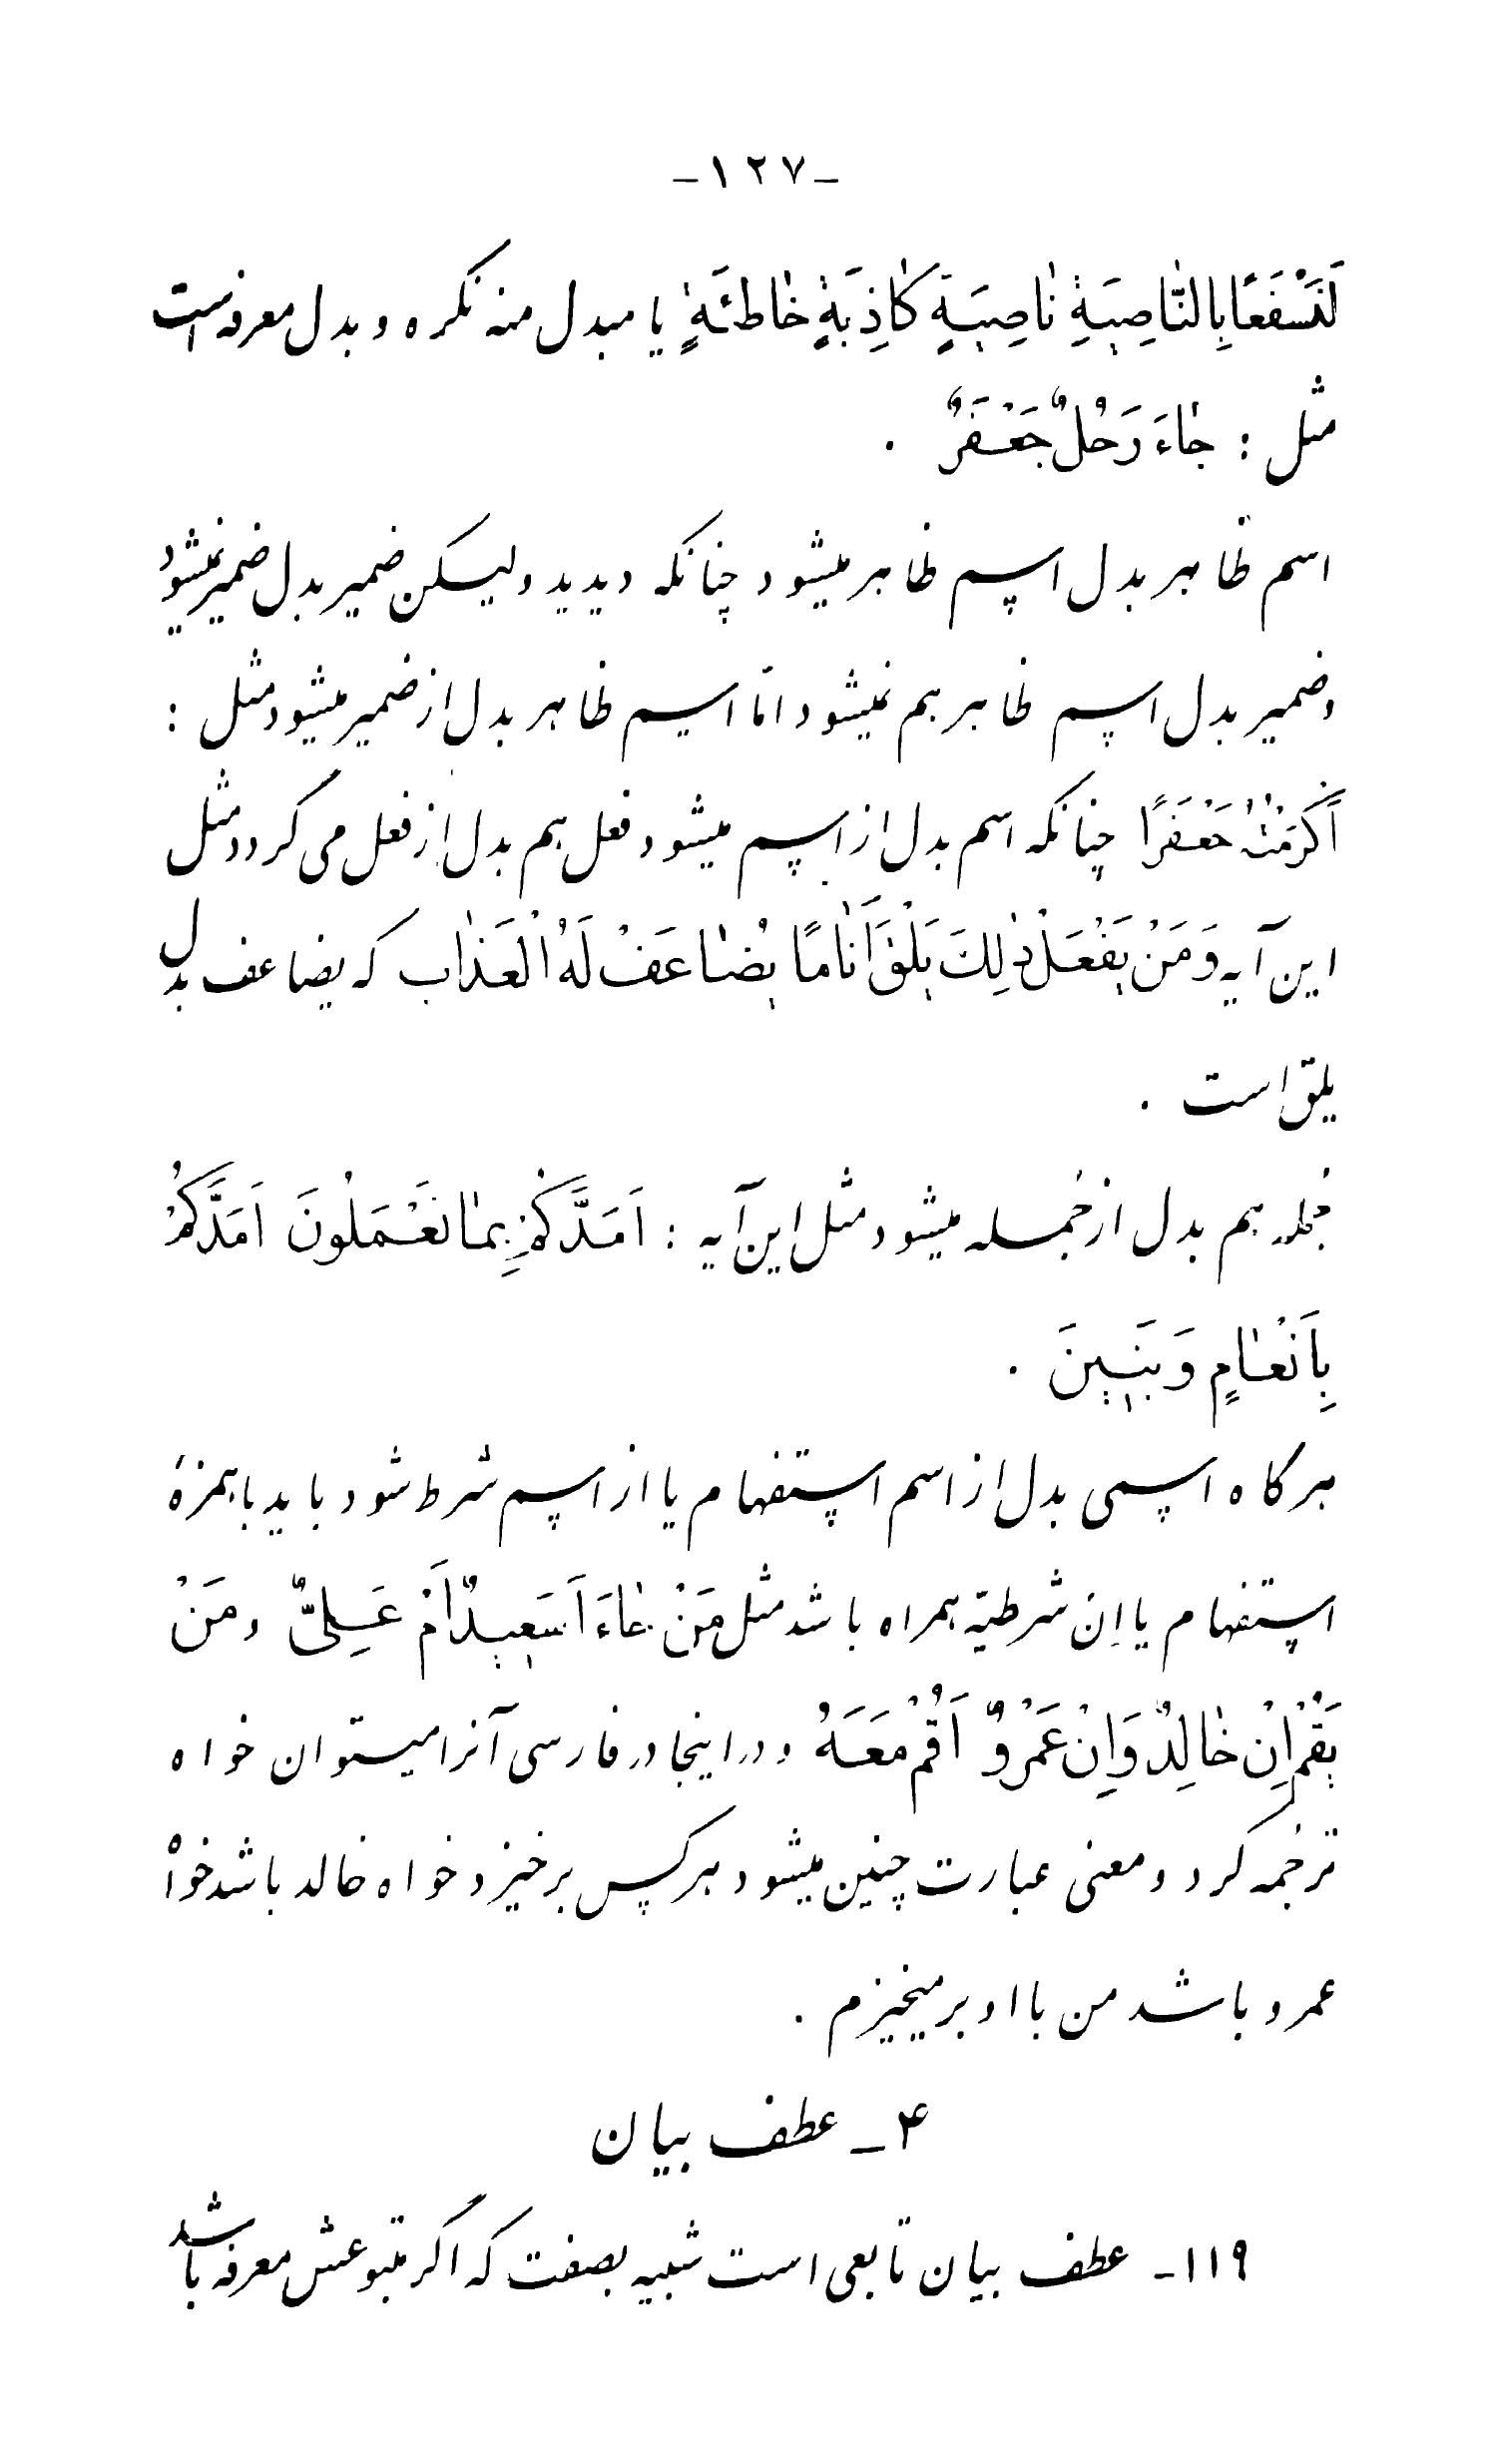 -۱۲۷-
لَنَسْفَعًا بِالنّٰاصِيَةِ نٰاصِيَةٍ كٰاذِبَةٍ خٰاطِئَةٍ یا مبدل منه نکره و بدل معرفه است
مثل : جٰاءَ رَجُلٌ جَعْفَرٌ .
اسم ظاهر بدل اسم ظاهر میشود چنانکه دیدید ولیکن ضمیر بدل ضمیر نمیشود
وضمیر بدل اسم ظاهر هم نمیشود امّا اسم ظاهر بدل از ضمیر میشود مثل :
اَكْرَمْتُهُ جَعْفَرًا چنانکه اسم بدل از اسم میشود فعل هم بدل از فعل می گردد مثل
این آیه وَمَنْ يَفْعَلْ ذٰلِكَ يَلْقَ اَثٰامًا يُضٰاعَفْ لَهُ الْعَذٰاب که یضاعف بدل
یلق است .
جُمله هم بدل از جُمله میشود مثل این آیه : اَمَدَّكُمْ بِمٰا تَعْمَلُونَ اَمَدَّكُمْ
بِاَنْعٰامٍ وَبَنِينَ .
هرگاه اسمی بدل از اسم استفهام یا از اسم شرط شود باید با همزهٔ
استفهام یا اِن شرطیّه همراه باشد مثل مَنْ جٰاءَ اَسَعِيدٌ اَمْ عَلِيٌّ و مَنْ
يَقُمْ اِنْ خٰالِدٌ وَاِنْ عَمْرٌو اَقُمْ مَعَهُ و در اینجا در فارسی آنرا میتوان خواه
ترجُمه کرد و معنی عبارت چنین میشود هرکس برخیزد خواه خالد باشد خواه
عمرو باشد من با او برمیخیزم .
۴ــ عطف بیان
۱۱۹ـ عطف بیان تابعی است شبیه بصفت که اگر متبوعش معرفه باشد